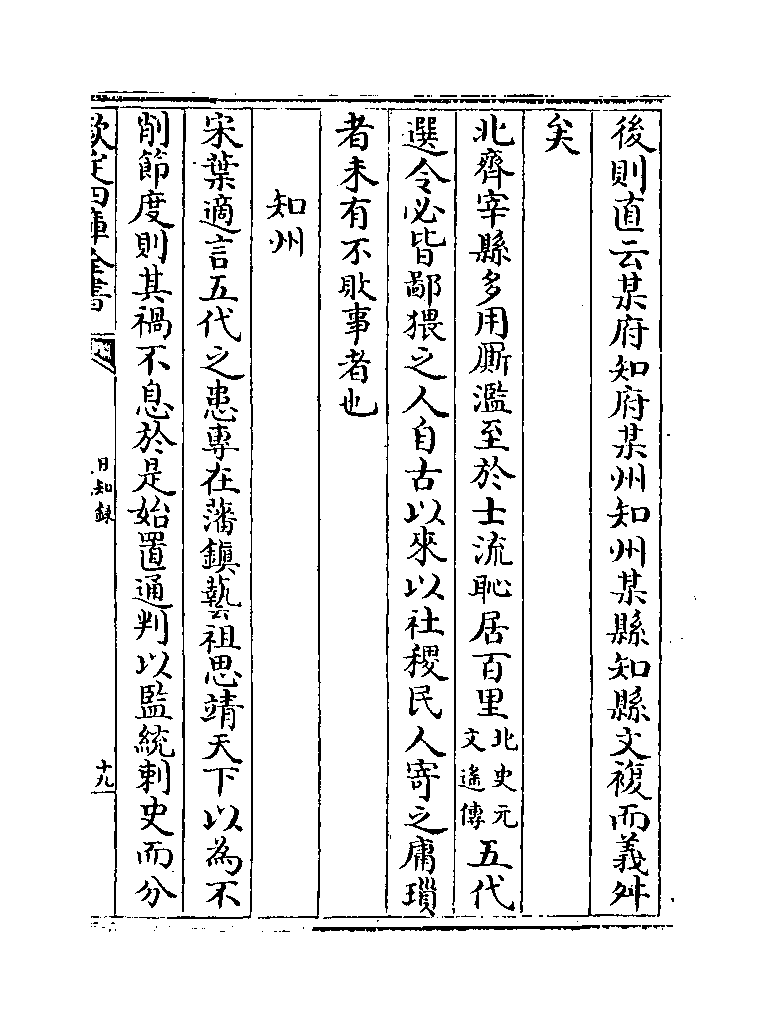 後則直云某府知府某州知州某縣知縣文複而義舛
矣
北齊宰縣多用厮濫至於士流恥居百里北史元文遙傳五代
選令必皆鄙猥之人自古以來以社稷民人寄之庸瑣
者未有不敗事者也
知州
宋葉適言五代之患專在藩鎮藝祖思靖天下以為不
削節度則其禍不息於是始置通判以監統刺史而分
欽定四庫全書
日知錄
十九